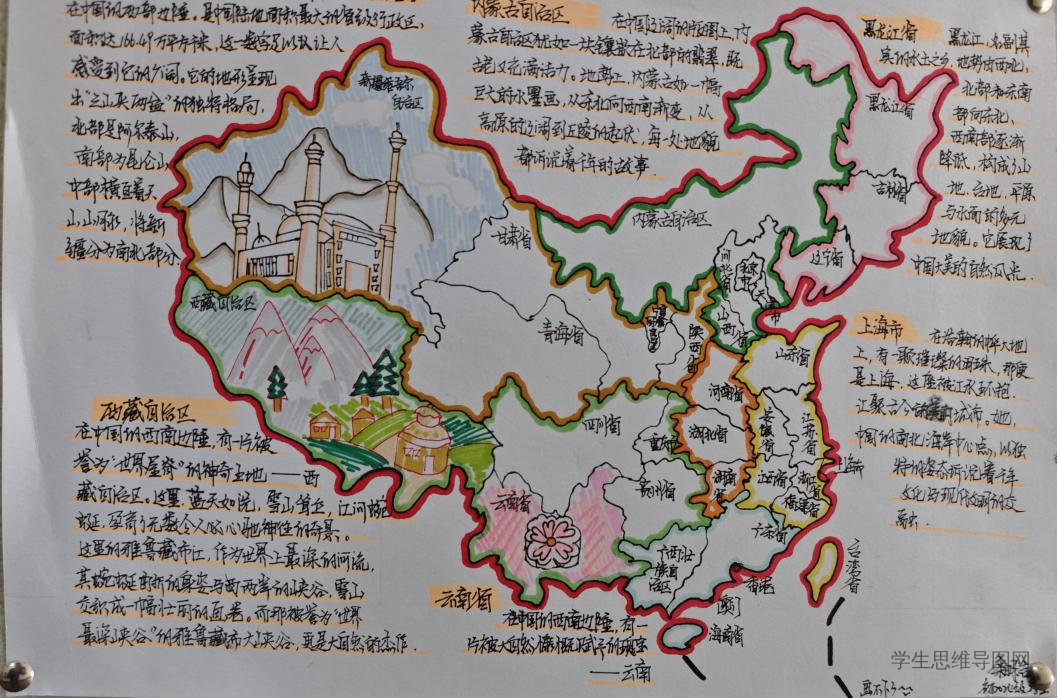 在中国的西部边陲，是中国陆地面积最大的省级行政区，
面积达166.49万平方千米，这一数字足以让人
感受到它的广阔。它的地形呈现
出"三山夹两盆"的独特格局，
北部是阿尔泰山，
南部为昆仑山，
中部横亘着天
山，山
疆分为南北部分
内蒙古自治区
在中国辽阔的版图上，内
蒙古自治区犹如一块镶嵌在北部的翡翠，既
又充满活力。地貌上，内蒙古如一幅
巨大的水墨画，从东北向西南渐变，从
高原的辽阔到丘陵的起伏，每一处地貌
都诉说着千年的故事.
黑龙江省
黑龙江，名副其
实的水土之乡，地势对西北，
北部和东南
部向东北、
西南部逐渐
降低，构成了山
地、台地、平原
与水面的多元
地貌。它展现了
中国大美的自然风光.
新疆维吾尔
自治区
西藏自治区
甘肃省
青海省
内蒙古自治区
黑龙江省
吉林省
辽宁省
河北省
北京
天津市
山西省
陕西省
山东省
河南省
四川省
重庆
湖北省
安徽省
江苏省
上海
湖南省
江西省
浙江省
福建省
贵州省
云南省
广西壮
族自
治区
广东省
香港
澳门
海南省
台湾省
上海市
在浩瀚的华夏大地
上，有一颗璀璨的明珠，那便
是上海，这座被江水环抱、
汇聚古今的城市。她，
中国的南北海岸中心点，以独
特的姿态诉说着千年
文化与现代文明的交
西藏自治区
在中国的西南边陲，有一片被
誉为"世界屋脊"的神奇土地——西
藏自治区。这里，蓝天如洗，雪山耸立，江河蜿
蜒，孕育了无数令人叹心驰神往的奇景。
这里的雅鲁藏布江，作为世界上最深的河流，
其蜿蜒曲折的身姿与两岸的峡谷、雪山
交织成一幅壮丽的画卷。而那被誉为"世界
最深峡谷"的雅鲁藏布大峡谷，更是大自然的杰作.
云南省
在中国的西南边陲，有一
片被大自然慷慨赋予的瑰宝
——云南
学生思维导图网
画不下了~